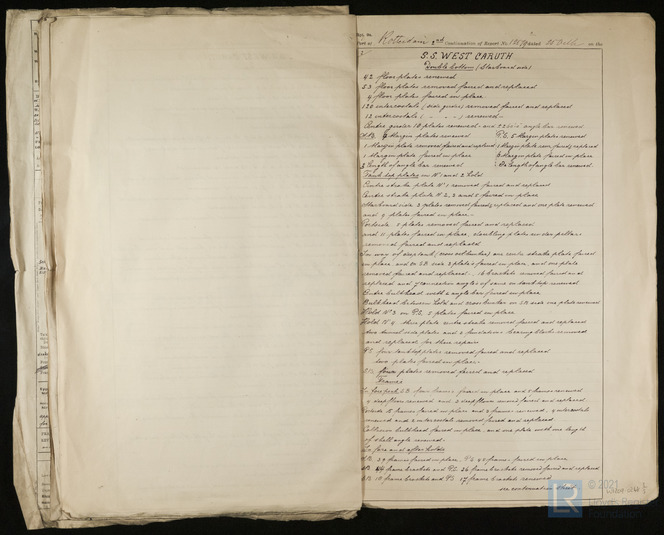 Rotterdam 2nd Continuation of Report No. dated on the
S.S. WEST CARUTH
Double bottom (Starboard side)
42 floor plates renewed
53 floor plates removed faired and replaced
4 floor plates faired in place
120 intercostals (side girders) removed faired and replaced
12 intercostals ( - - - ) renewed
Centre girder 10 plates renewed angle bar renewed
S.B. 6 Margin plates renewed P.S. 5 Margin plates renewed
1 Margin plate removed faired and replaced 1 Margin plate remov. faired & replaced
1 Margin plate faired in place 6 Margin plate faired in place
Length of angle bar renewed Length of angle bar renewed
Tank top plates in No 1 and 2 hold
Centre strake plate No 1 removed faired and replaced
Centre strake plate No 2, 3 and 5 faired in place
Starboard side 2 plates removed faired & replaced and one plate renewed
and 9 plates faired in place
Portside 5 plates removed faired and replaced
and 11 plates faired in place, doubling plates under pillar
removed faired and replaced
In way of deeptank (cross coal bunker) one centre strake plate faired
in place, and on S.B. side 3 plates faired in place and one plate
removed faired and replaced. 16 brackets removed faired and
replaced and connection angles of same on tanktop renewed
Centre bulkhead with angle bar faired in place
Bulkhead between hold and cross bunker on S.B. side one plate renewed
Hold No 3 on P.S. 2 plates faired in place
Hold No 4 three plate centre strake removed faired and replaced
two tunnel side plates and 2 foundations bearing blocks removed
and replaced for these repairs
P.S. four tanktop plates removed faired and replaced
two plates faired in place
S.B. four plates removed faired and replaced
Frames
In forepeak S.B. four frames faired in place and 2 frames renewed
deep floors renewed and 2 deep floors removed faired and replaced
Portside 12 frames faired in place and 2 frames renewed, 4 intercostals
renewed and 2 intercostals removed faired and replaced
Collision bulkhead faired in place and one plate with one length
of shell angle renewed.
In fore and afterholds
S.B. 39 frames faired in place, P.S. 42 frames faired in place
S.B. 44 frame brackets and P.S. 26 frame brackets removed faired and replaced
S.B. 18 frame brackets and P.S. 17 frame brackets renewed
see continuation sheet
© 2021
LR
Lloyd's Register
Foundation